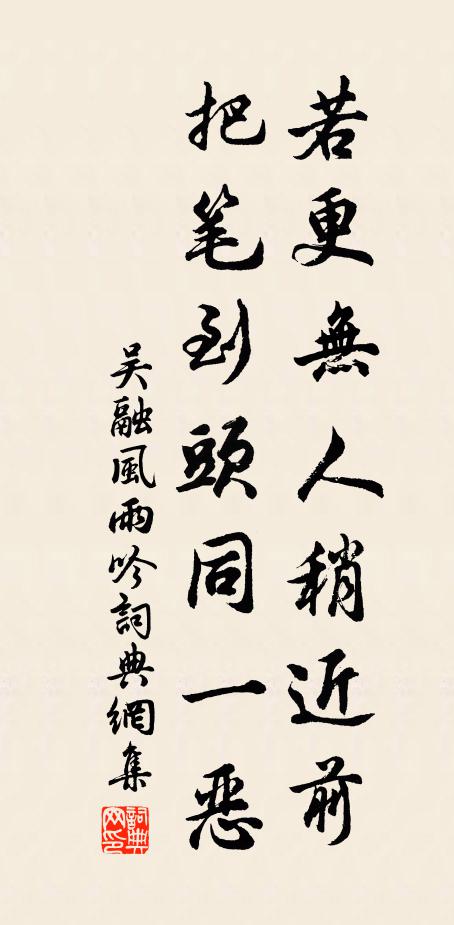 若更無人稍近前
把笔到頭同一惡
吳融風雨吟詞典網集
詞典网印